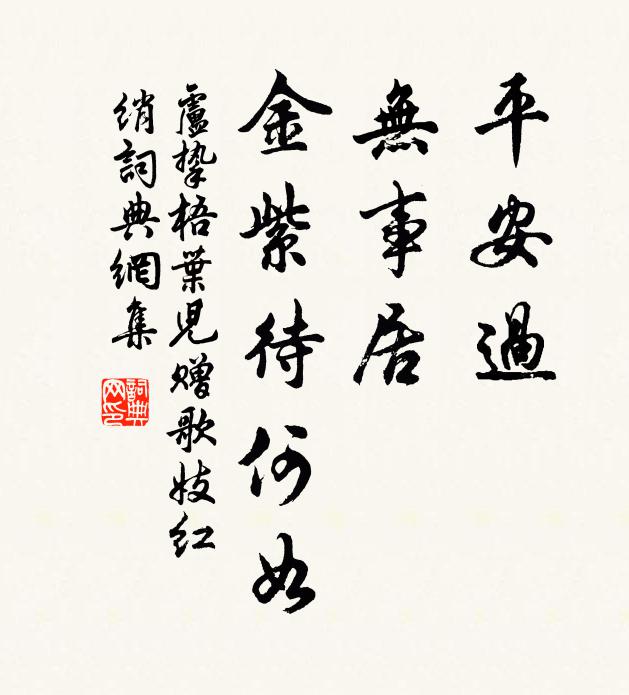 平安過
無事居
金紫待何如
盧摯梧葉兒贈歌妓紅
綃詞典網集
詞典
网印